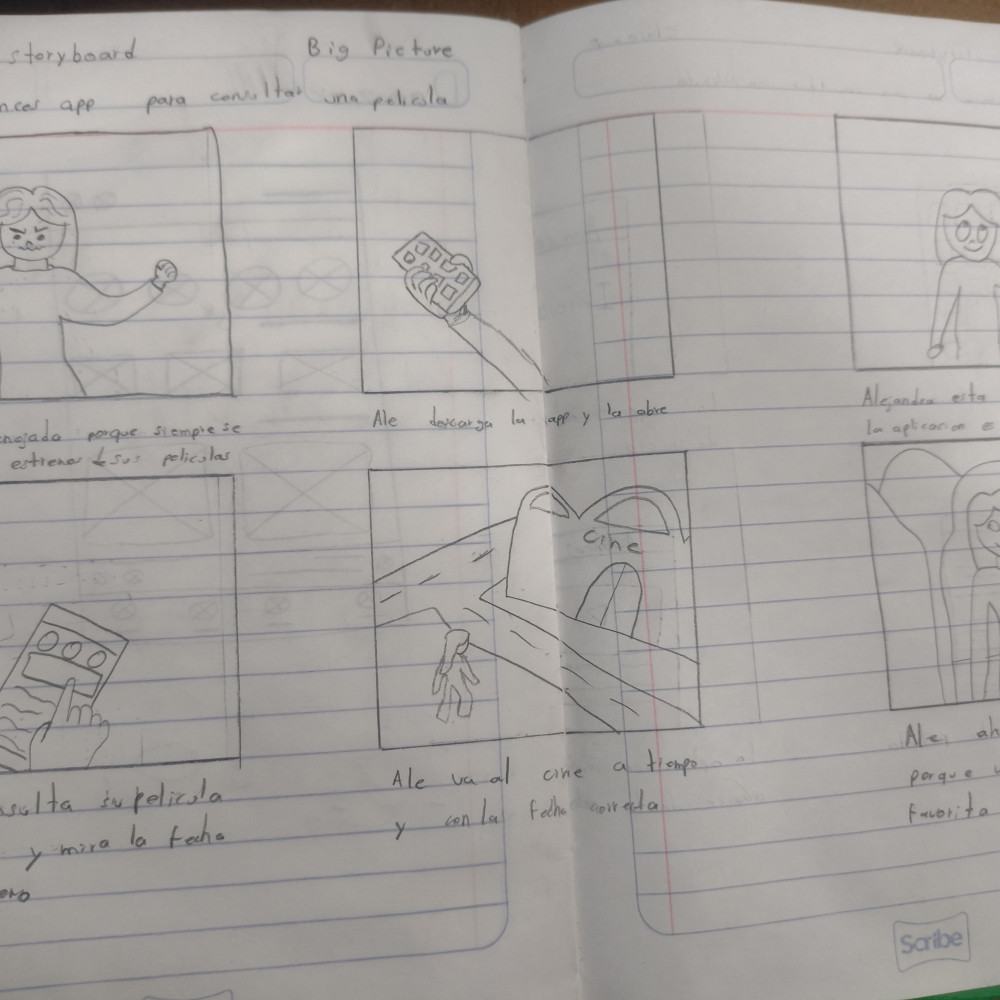 storyboard
Big Picture
app para consultar una pelicula
porque siempre se
estrenos sus peliculas
Ale descarga la app y la abre
Alejandra esta
la aplicacion e
cine
su pelicula
y mira la fecha
Ale va al cine a tiempo
y con la fecha correcta
Ale ah
porque v
favorita
Scribe